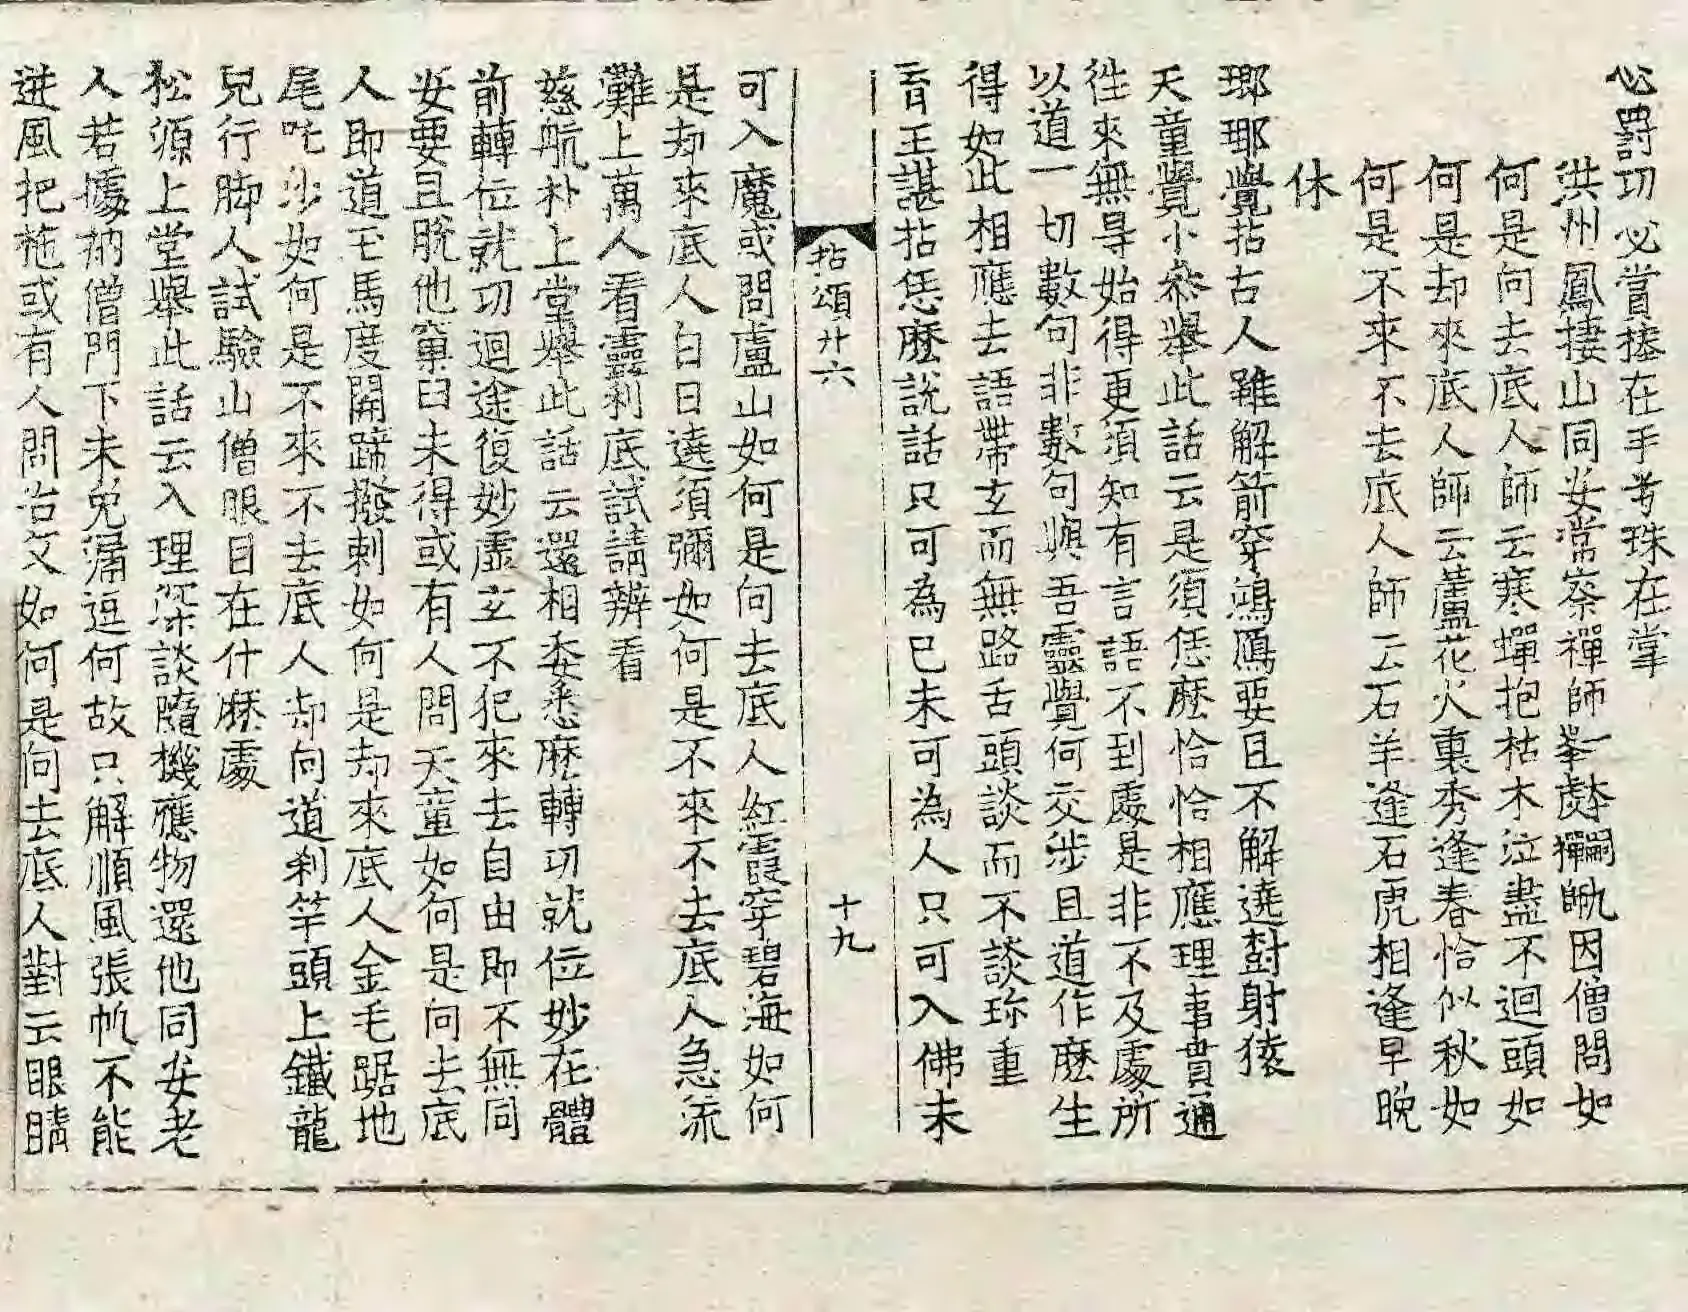 必罰功必賞捿在手考珠在掌
洪州鳳捿山同安常察禪師因僧問如
何是向去底人師云寒蟬抱枯木泣盡不迴頭如
何是却來底人師云蘆花火裏秀逢春恰似秋如
何是不來不去底人師云石羊逢石虎相逢早晚
休
瑯瑘覺拈古人雖解箭穿鴻鴈要且不解遶𣗳射猿
天童覺小叅舉此話云是須恁麽恰恰相應理事貫通
徃來無㝵始得更須知有言語不到處是非不及處所
以道一切數句非數句與吾靈覺何交涉且道作麽生
得如此相應去語帶玄而無路舌頭談而不談珎重
育王諶拈恁麽說話只可為巳未可為人只可入佛未
拈頌廾六 十九
可入魔或問盧山如何是向去底人紅霞穿碧海如何
是却來底人白日遶須彌如何是不來不去底人急流
灘上萬人看靈利底試請辨看
慈航朴上堂舉此話云還相委悉麽轉功就位妙在體
前轉位就功迴途復妙虛玄不犯來去自由即不無同
安要且脫他窠臼未得或有人問天童如何是向去底
人即道玉馬度開蹄撥剌如何是却來底人金毛踞地
尾吒沙如何是不來不去底人却向道刹竿頭上鐵龍
兒行脚人試驗山僧眼目在什麽處
松源上堂舉此話云入理深談隨機應物還他同安老
人若據衲僧門下未免漏逗何故只解順風張帆不能
逆風把柂或有人問冶父如何是向去底人對云眼睛